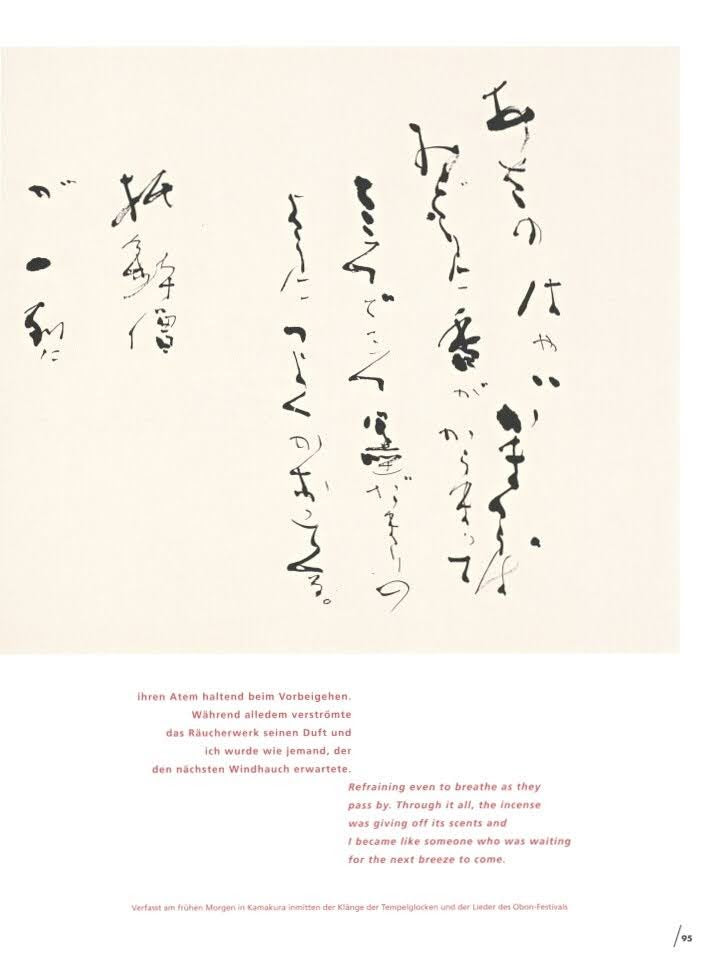 あさの はやい かまくらは、
に香が からまって
だまりの
ように つよく かおってくる。
托鉢僧
が一列に
ihren Atem haltend beim Vorbeigehen.
Während alledem verströmte
das Räucherwerk seinen Duft und
ich wurde wie jemand, der
den nächsten Windhauch erwartete.
Refraining even to breathe as they
pass by. Through it all, the incense
was giving off its scents and
I became like someone who was waiting
for the next breeze to come.
Verfasst am frühen Morgen in Kamakura inmitten der Klänge der Tempelglocken und der Lieder des Obon-Festivals
/95